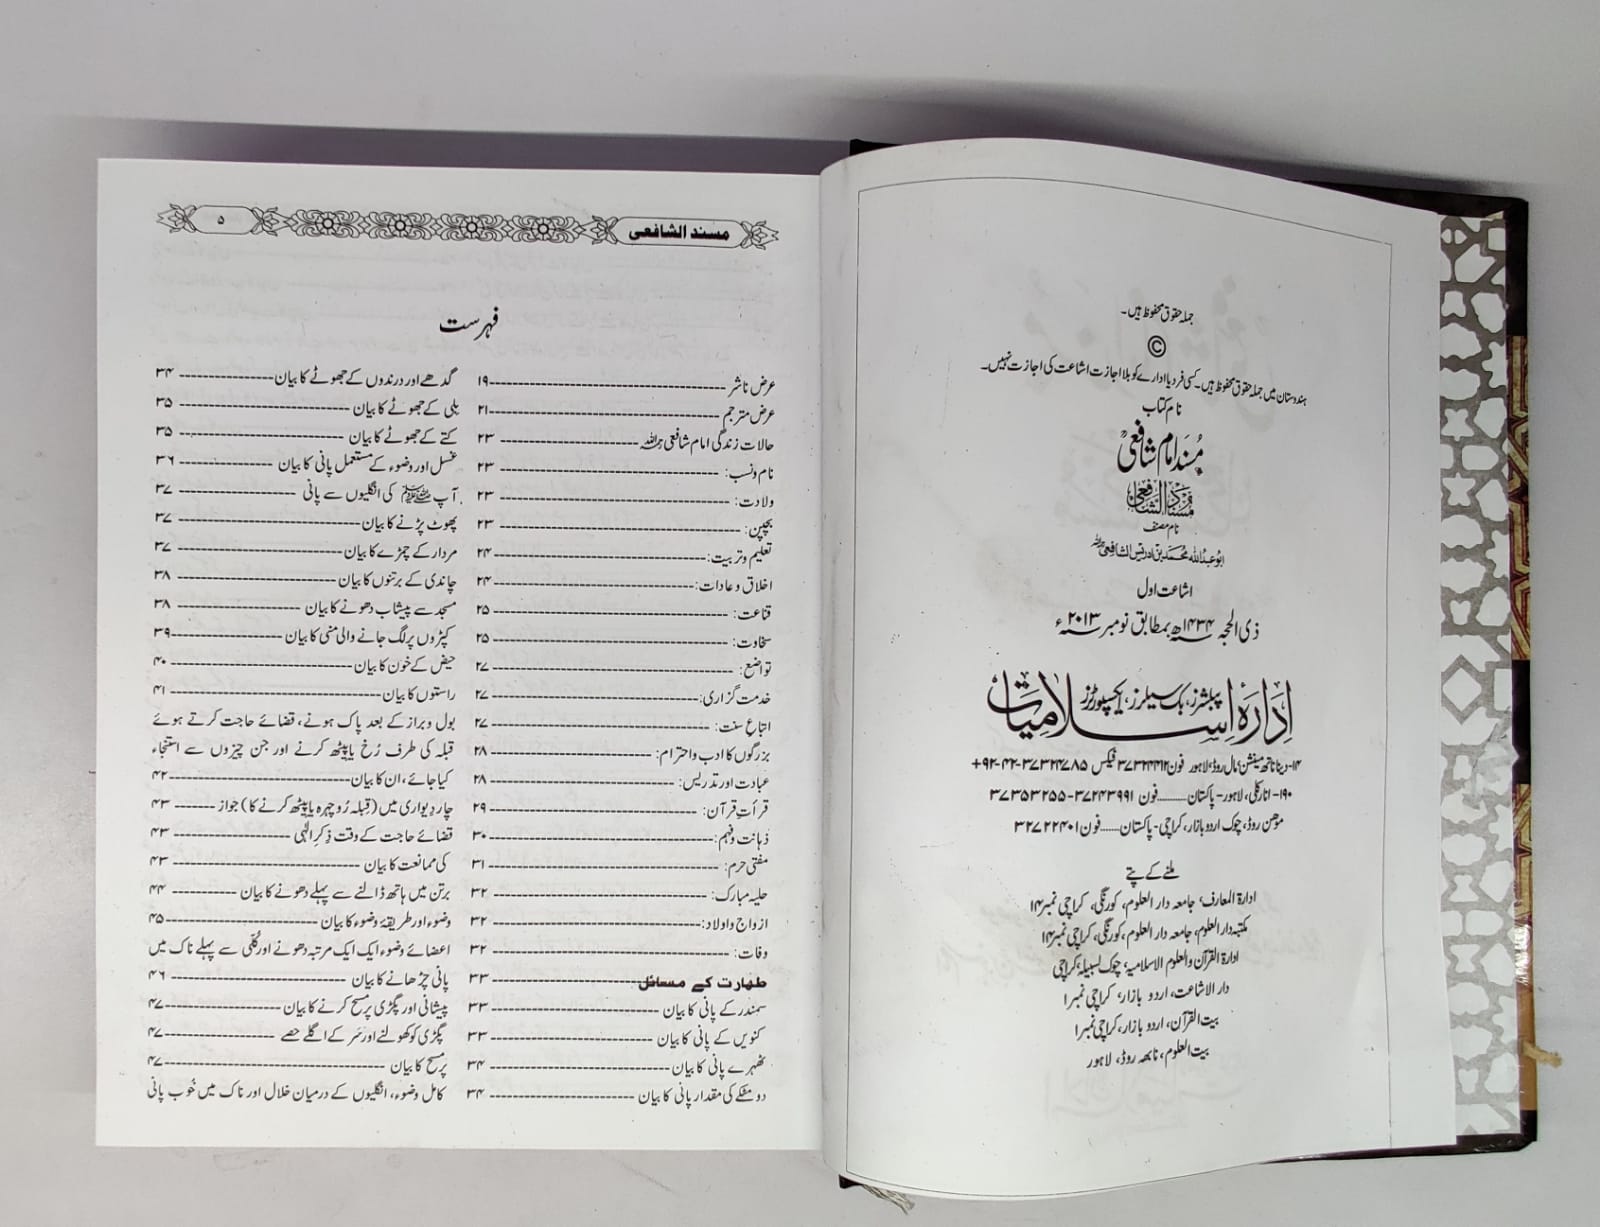 جملہ حقوق محفوظ ہیں۔
©
ہندوستان میں جملہ حقوق محفوظ ہیں۔ کسی فرد یا ادارے کو بلا اجازت اشاعت کی اجازت نہیں۔
نام کتاب
مُسند امام شافعیؒ
مُسْنَدُ الشَّافِعِي
نام مصنف
ابو عبد اللہ محمد بن ادریس الشافعی رحمہ اللہ
اشاعت اول
ذی الحجہ ۱۴۳۴ھ بمطابق نومبر ۲۰۱۳ء
ادارۂ اسلامیات پبلشرز، بک سیلرز، ایکسپورٹرز
۱۴- دینا ناتھ مینشن مال روڈ، لاہور فون ۳۷۳۲۴۴۱۲ فیکس ۳۷۳۲۴۷۸۵-۴۲-۹۲+
۱۹۰- انار کلی، لاہور- پاکستان.........فون ۳۷۲۴۳۹۹۱-۳۷۳۵۳۲۵۵
موہن روڈ، چوک اردو بازار، کراچی- پاکستان......فون ۳۲۷۲۲۴۰۱
ملنے کے پتے
ادارۃ المعارف، جامعہ دار العلوم، کورنگی، کراچی نمبر ۱۴
مکتبہ دار العلوم، جامعہ دار العلوم، کورنگی، کراچی نمبر ۱۴
ادارۃ القرآن والعلوم الاسلامیہ، چوک لسبیلہ، کراچی
دار الاشاعت، اردو بازار، کراچی نمبر ۱
بیت القرآن، اردو بازار، کراچی نمبر ۱
بیت العلوم، نابھہ روڈ، لاہور
مسند الشافعی
۵
فہرست
عرض ناشر ۱۹
عرض مترجم ۲۱
حالات زندگی امام شافعی رحمہ اللہ ۲۳
نام و نسب: ۲۳
ولادت: ۲۳
بچپن: ۲۳
تعلیم و تربیت: ۲۴
اخلاق و عادات: ۲۴
قناعت: ۲۵
سخاوت: ۲۵
تواضع: ۲۷
خدمت گزاری: ۲۷
اتباعِ سنت: ۲۷
بزرگوں کا ادب و احترام: ۲۸
عبادت اور تدریس: ۲۸
قرأتِ قرآن: ۲۹
ذہانت و فہم: ۳۰
مفتی حرم: ۳۱
حلیہ مبارک: ۳۲
ازواج و اولاد: ۳۲
وفات: ۳۲
طہارت کے مسائل ۳۳
سمندر کے پانی کا بیان ۳۳
کنویں کے پانی کا بیان ۳۳
ٹھہرے پانی کا بیان ۳۴
دو مٹکے کی مقدار پانی کا بیان ۳۴
گدھے اور درندوں کے جھوٹے کا بیان ۳۴
بلی کے جھوٹے کا بیان ۳۵
کتے کے جھوٹے کا بیان ۳۵
غسل اور وضوء کے مستعمل پانی کا بیان ۳۶
آپ ﷺ کی انگلیوں سے پانی ۳۷
پھوٹ پڑنے کا بیان ۳۷
مردار کے چمڑے کا بیان ۳۷
چاندی کے برتنوں کا بیان ۳۸
مسجد سے پیشاب دھونے کا بیان ۳۸
کپڑوں پر لگ جانے والی منی کا بیان ۳۹
حیض کے خون کا بیان ۴۰
راستوں کا بیان ۴۱
بول و براز کے بعد پاک ہونے، قضائے حاجت کرتے ہوئے
قبلہ کی طرف رُخ یا پیٹھ کرنے اور جن چیزوں سے استنجاء
کیا جائے، ان کا بیان ۴۲
چار دیواری میں (قبلہ رُو چہرہ یا پیٹھ کرنے کا) جواز ۴۳
قضائے حاجت کے وقت ذِکرِ الٰہی ۴۳
کی ممانعت کا بیان ۴۳
برتن میں ہاتھ ڈالنے سے پہلے دھونے کا بیان ۴۴
وضوء اور طریقۂ وضوء کا بیان ۴۵
اعضائے وضوء ایک ایک مرتبہ دھونے اور کُلّی سے پہلے ناک میں
پانی چڑھانے کا بیان ۴۶
پیشانی اور پگڑی پر مسح کرنے کا بیان ۴۷
پگڑی کو کھولنے اور سَر کے اگلے حصے ۴۷
پر مسح کا بیان ۴۷
کامل وضوء، انگلیوں کے درمیان خلال اور ناک میں خُوب پانی